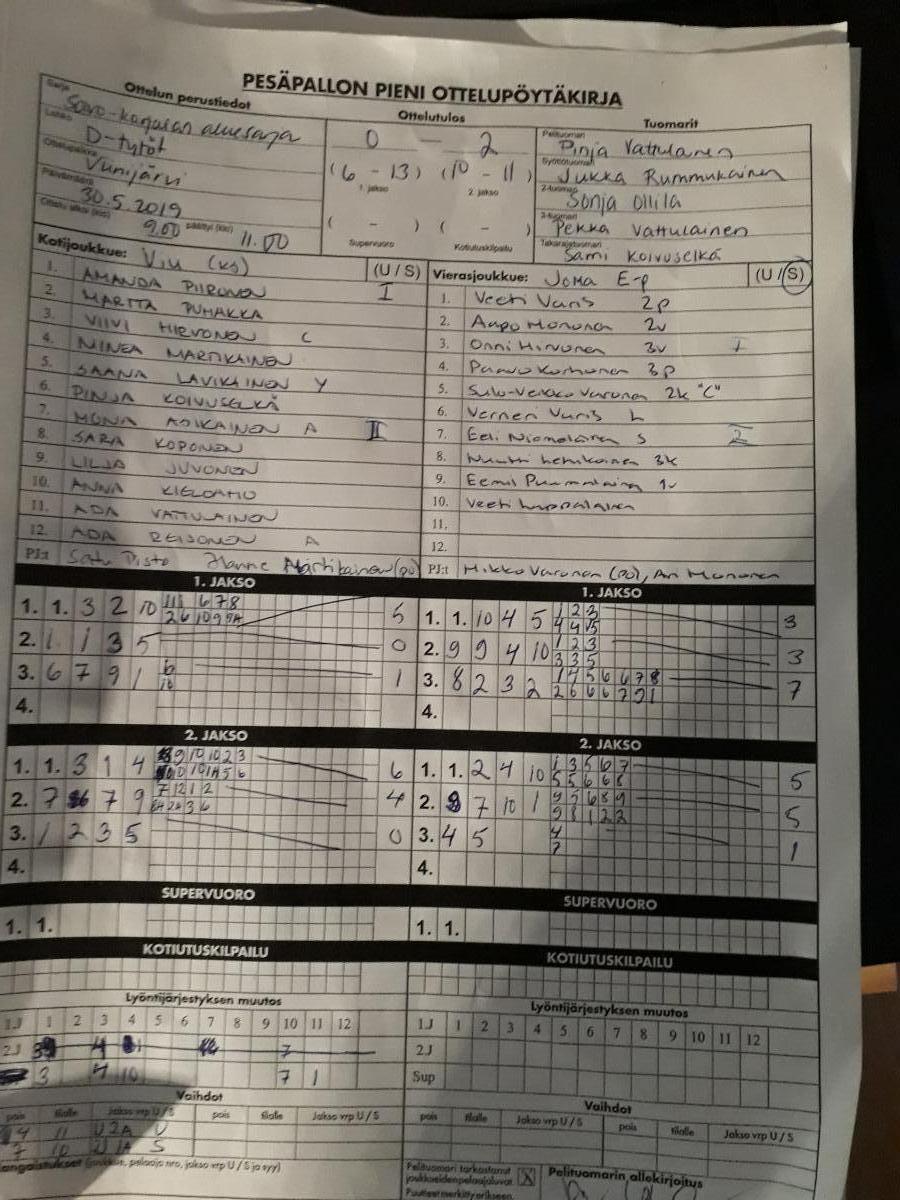 PESÄPALLON PIENI OTTELUPÖYTÄKIRJA
Ottelun perustiedot
Ottelutulos
Tuomarit
Sarja
Savo-Karjalan aluesarja
Lohko
D-tytöt
Ottelupaikka
Vunijärvi
Päivämäärä
30.5.2019
Ottelu alkoi (klo) 9.00 päättyi (klo) 11.00
0 — 2
(6 - 13) (10 - 11)
1. jakso 2. jakso
( - ) ( - )
Supervuoro Kotiutuskilpailu
Pelituomari
Pinja Vattulainen
Syöttötuomari
Jukka Rummukainen
2-tuomari
Sonja Ollila
3-tuomari
Pekka Vattulainen
Takarajatuomari
Sami Koivuselkä
Kotijoukkue: ViU (KS) (U / S)
1. AMANDA PIIRONEN I
2. MARTTA PUHAKKA
3. VIIVI HIRVONEN C
4. MINEA MARTIKAINEN
5. SAANA LAVIKAINEN Y
6. PINJA KOIVUSELKÄ
7. MONA ASIKAINEN A II
8. SARA KOPONEN
9. LILJA JUVONEN
10. ANNA
11. ADA VATTULAINEN
12. ADA REIJONEN A
PJ:t Satu Hanne Martikainen (po)
Vierasjoukkue: JoMa E-p (U / S)
1. Veeti Varis 2p
2. Aapo Mononen 2v
3. Onni Hirvonen 3v I
4. Paavo Korhonen 3p
5. Sulo-Veikko Varonen 2k "C"
6. Verneri Varis L
7. Eeli Niemeläinen S 2
8. Nuutti 3k
9. Eemil 1v
10. Veeti
11.
12.
PJ:t Mikko Varonen (PO), Ari Mononen
1. JAKSO
1. 1. 3 2 10 6 7 8 5
2. 1 1 3 5 0
3. 6 7 9 1 1
4.
1. JAKSO
1. 1. 10 4 5 1 2 3 3
2. 9 9 4 10 1 2 3 3
3 3 5
3. 8 2 3 2 1 4 5 6 6 7 8 7
2 6 6 6 7 9 1
4.
2. JAKSO
1. 1. 3 1 4 9 10 10 2 3 6
2. 7 7 9 7 12 1 2 4
3. 1 2 3 5 0
4.
2. JAKSO
1. 1. 2 4 10 1 3 5 6 7 5
5 5 6 6 8
2. 9 7 10 1 9 5 6 8 9 5
9 8 1 2 2
3. 4 5 4 1
7
4.
SUPERVUORO
1. 1.
SUPERVUORO
1. 1.
KOTIUTUSKILPAILU
KOTIUTUSKILPAILU
Lyöntijärjestyksen muutos
1J 1 2 3 4 5 6 7 8 9 10 11 12
2J 4 7
3 4 10 7 1
Lyöntijärjestyksen muutos
1J 1 2 3 4 5 6 7 8 9 10 11 12
2J
Sup
Vaihdot
pois tilalle Jakso vrp U / S pois tilalle Jakso vrp U / S
4 11 U 2A U
7 10 2J 1A S
Vaihdot
pois tilalle Jakso vrp U / S pois tilalle Jakso vrp U / S
(joukkue, pelaaja nro, jakso vrp U / S ja syy)
Pelituomari tarkastanut joukkueiden pelaajaluvat. X
Pelituomarin allekirjoitus
Puutteet merkitty erikseen.